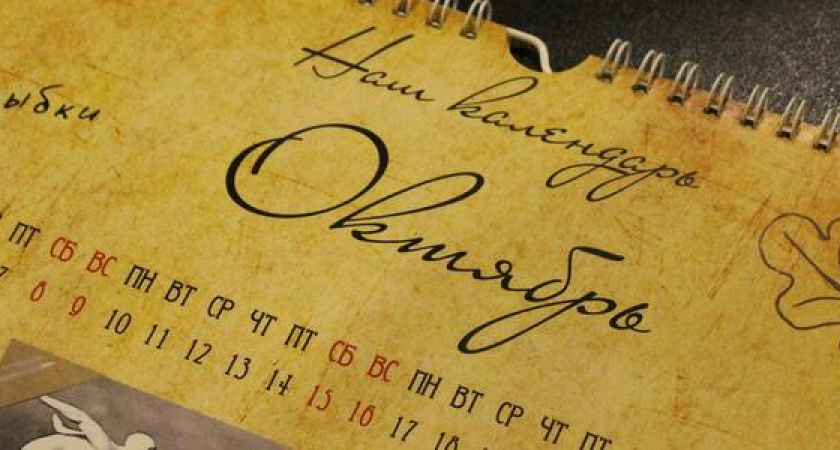 Наш календарь
ыбки
Октябрь
ПТ СБ ВС ПН ВТ СР ЧТ ПТ СБ ВС ПН ВТ СР ЧТ ПТ
7 8 9 10 11 12 13 14 15 16 17 18